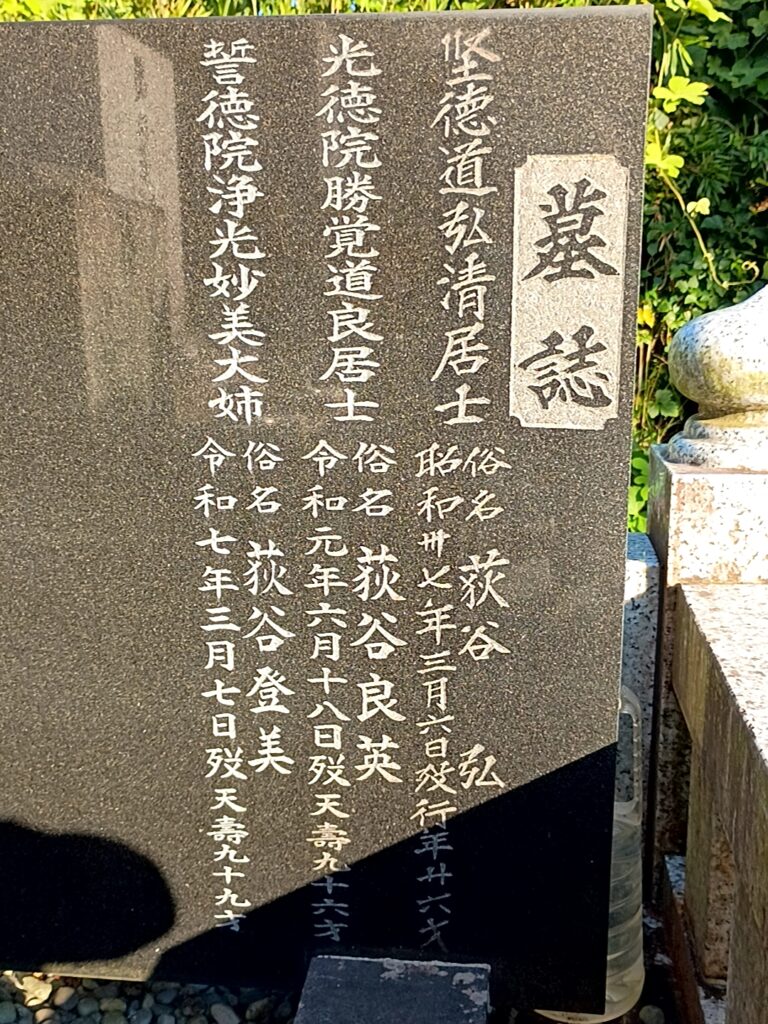 墓誌
堅徳道弘清居士
俗名 荻谷 弘
昭和卅七年三月六日歿行年廿六才
光徳院勝覚道良居士
俗名 荻谷良英
令和元年六月十八日歿天壽九十六才
誓徳院浄光妙美大姉
俗名 荻谷登美
令和七年三月七日歿天壽九十九才